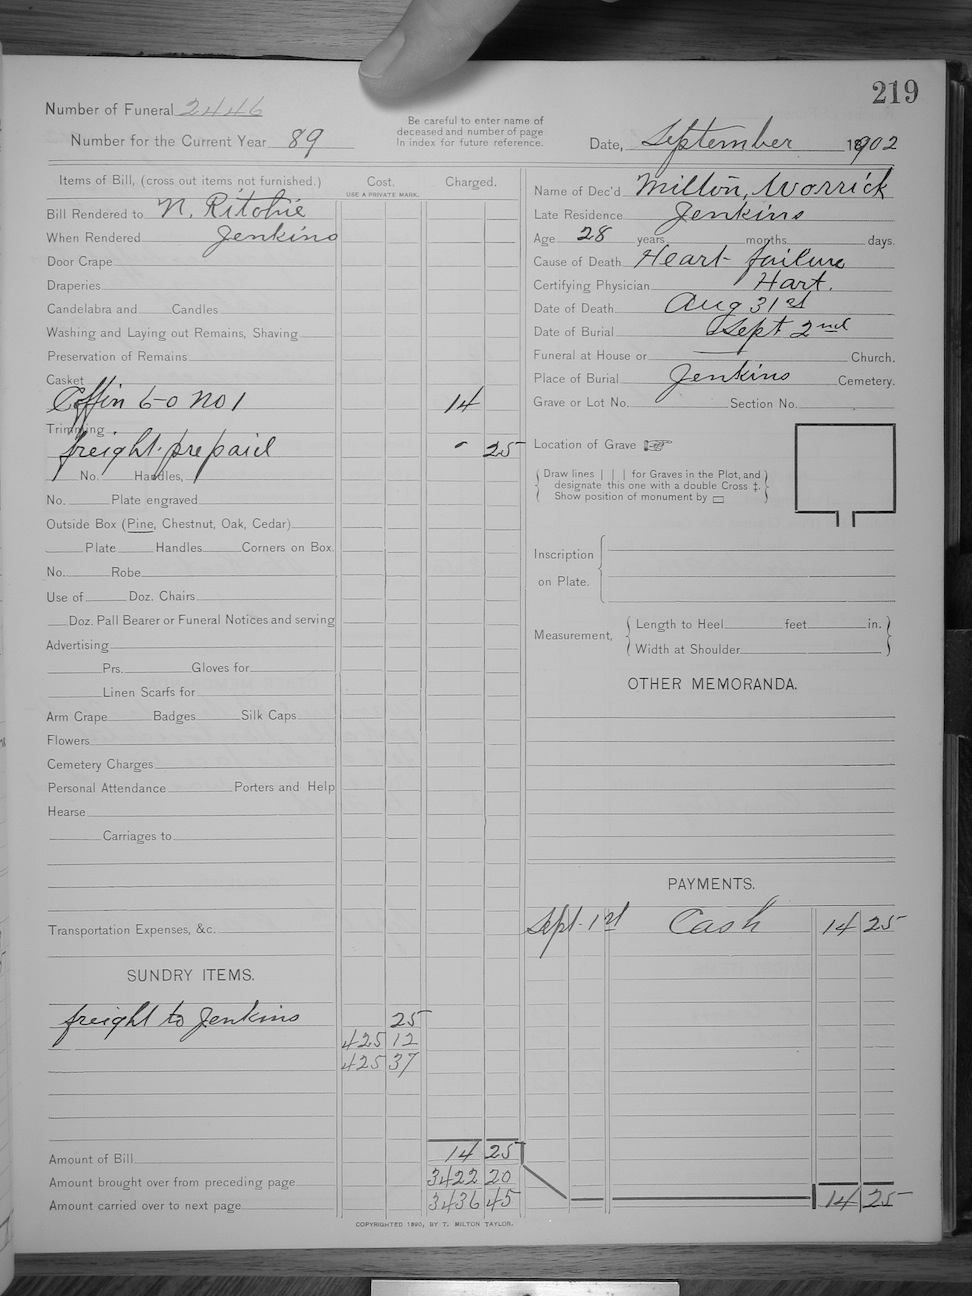 219
Number of Funeral 2446
Number for the Current Year 89
Be careful to enter name of
deceased and number of page
in index for future reference.
Date, September 1902
Items of Bill, (cross out items not furnished.) Cost. Charged.
USE A PRIVATE MARK.
Bill Rendered to N. Ritchie
When Rendered Jenkins
Door Crape
Draperies
Candelabra and Candles
Washing and Laying out Remains, Shaving
Preservation of Remains
Casket
Coffin 6-0 No 1 14
Trimming
freight prepaid - 25
No. Handles,
No. Plate engraved
Outside Box (Pine, Chestnut, Oak, Cedar)
Plate Handles Corners on Box.
No. Robe
Use of Doz. Chairs
Doz. Pall Bearer or Funeral Notices and serving
Advertising
Prs. Gloves for
Linen Scarfs for
Arm Crape Badges Silk Caps
Flowers
Cemetery Charges
Personal Attendance Porters and Help
Hearse
Carriages to
Transportation Expenses, &c.
SUNDRY ITEMS.
freight to Jenkins 25
425 12
425 37
Amount of Bill 14 25
Amount brought over from preceding page 3422 20
Amount carried over to next page 3436 45
Name of Dec'd Milton, Worrick
Late Residence Jenkins
Age 28 years, months days.
Cause of Death Heart failure
Certifying Physician Hart.
Date of Death Aug 31st
Date of Burial Sept 2nd
Funeral at House or Church.
Place of Burial Jenkins Cemetery.
Grave or Lot No. Section No.
Location of Grave ☞
Draw lines | | | for Graves in the Plot, and
designate this one with a double Cross ‡.
Show position of monument by ▭
Inscription
on Plate.
Measurement,
Length to Heel feet in.
Width at Shoulder
OTHER MEMORANDA.
PAYMENTS.
Sept. 1st Cash 14 25
14 25
COPYRIGHTED 1890, BY T. MILTON TAYLOR.